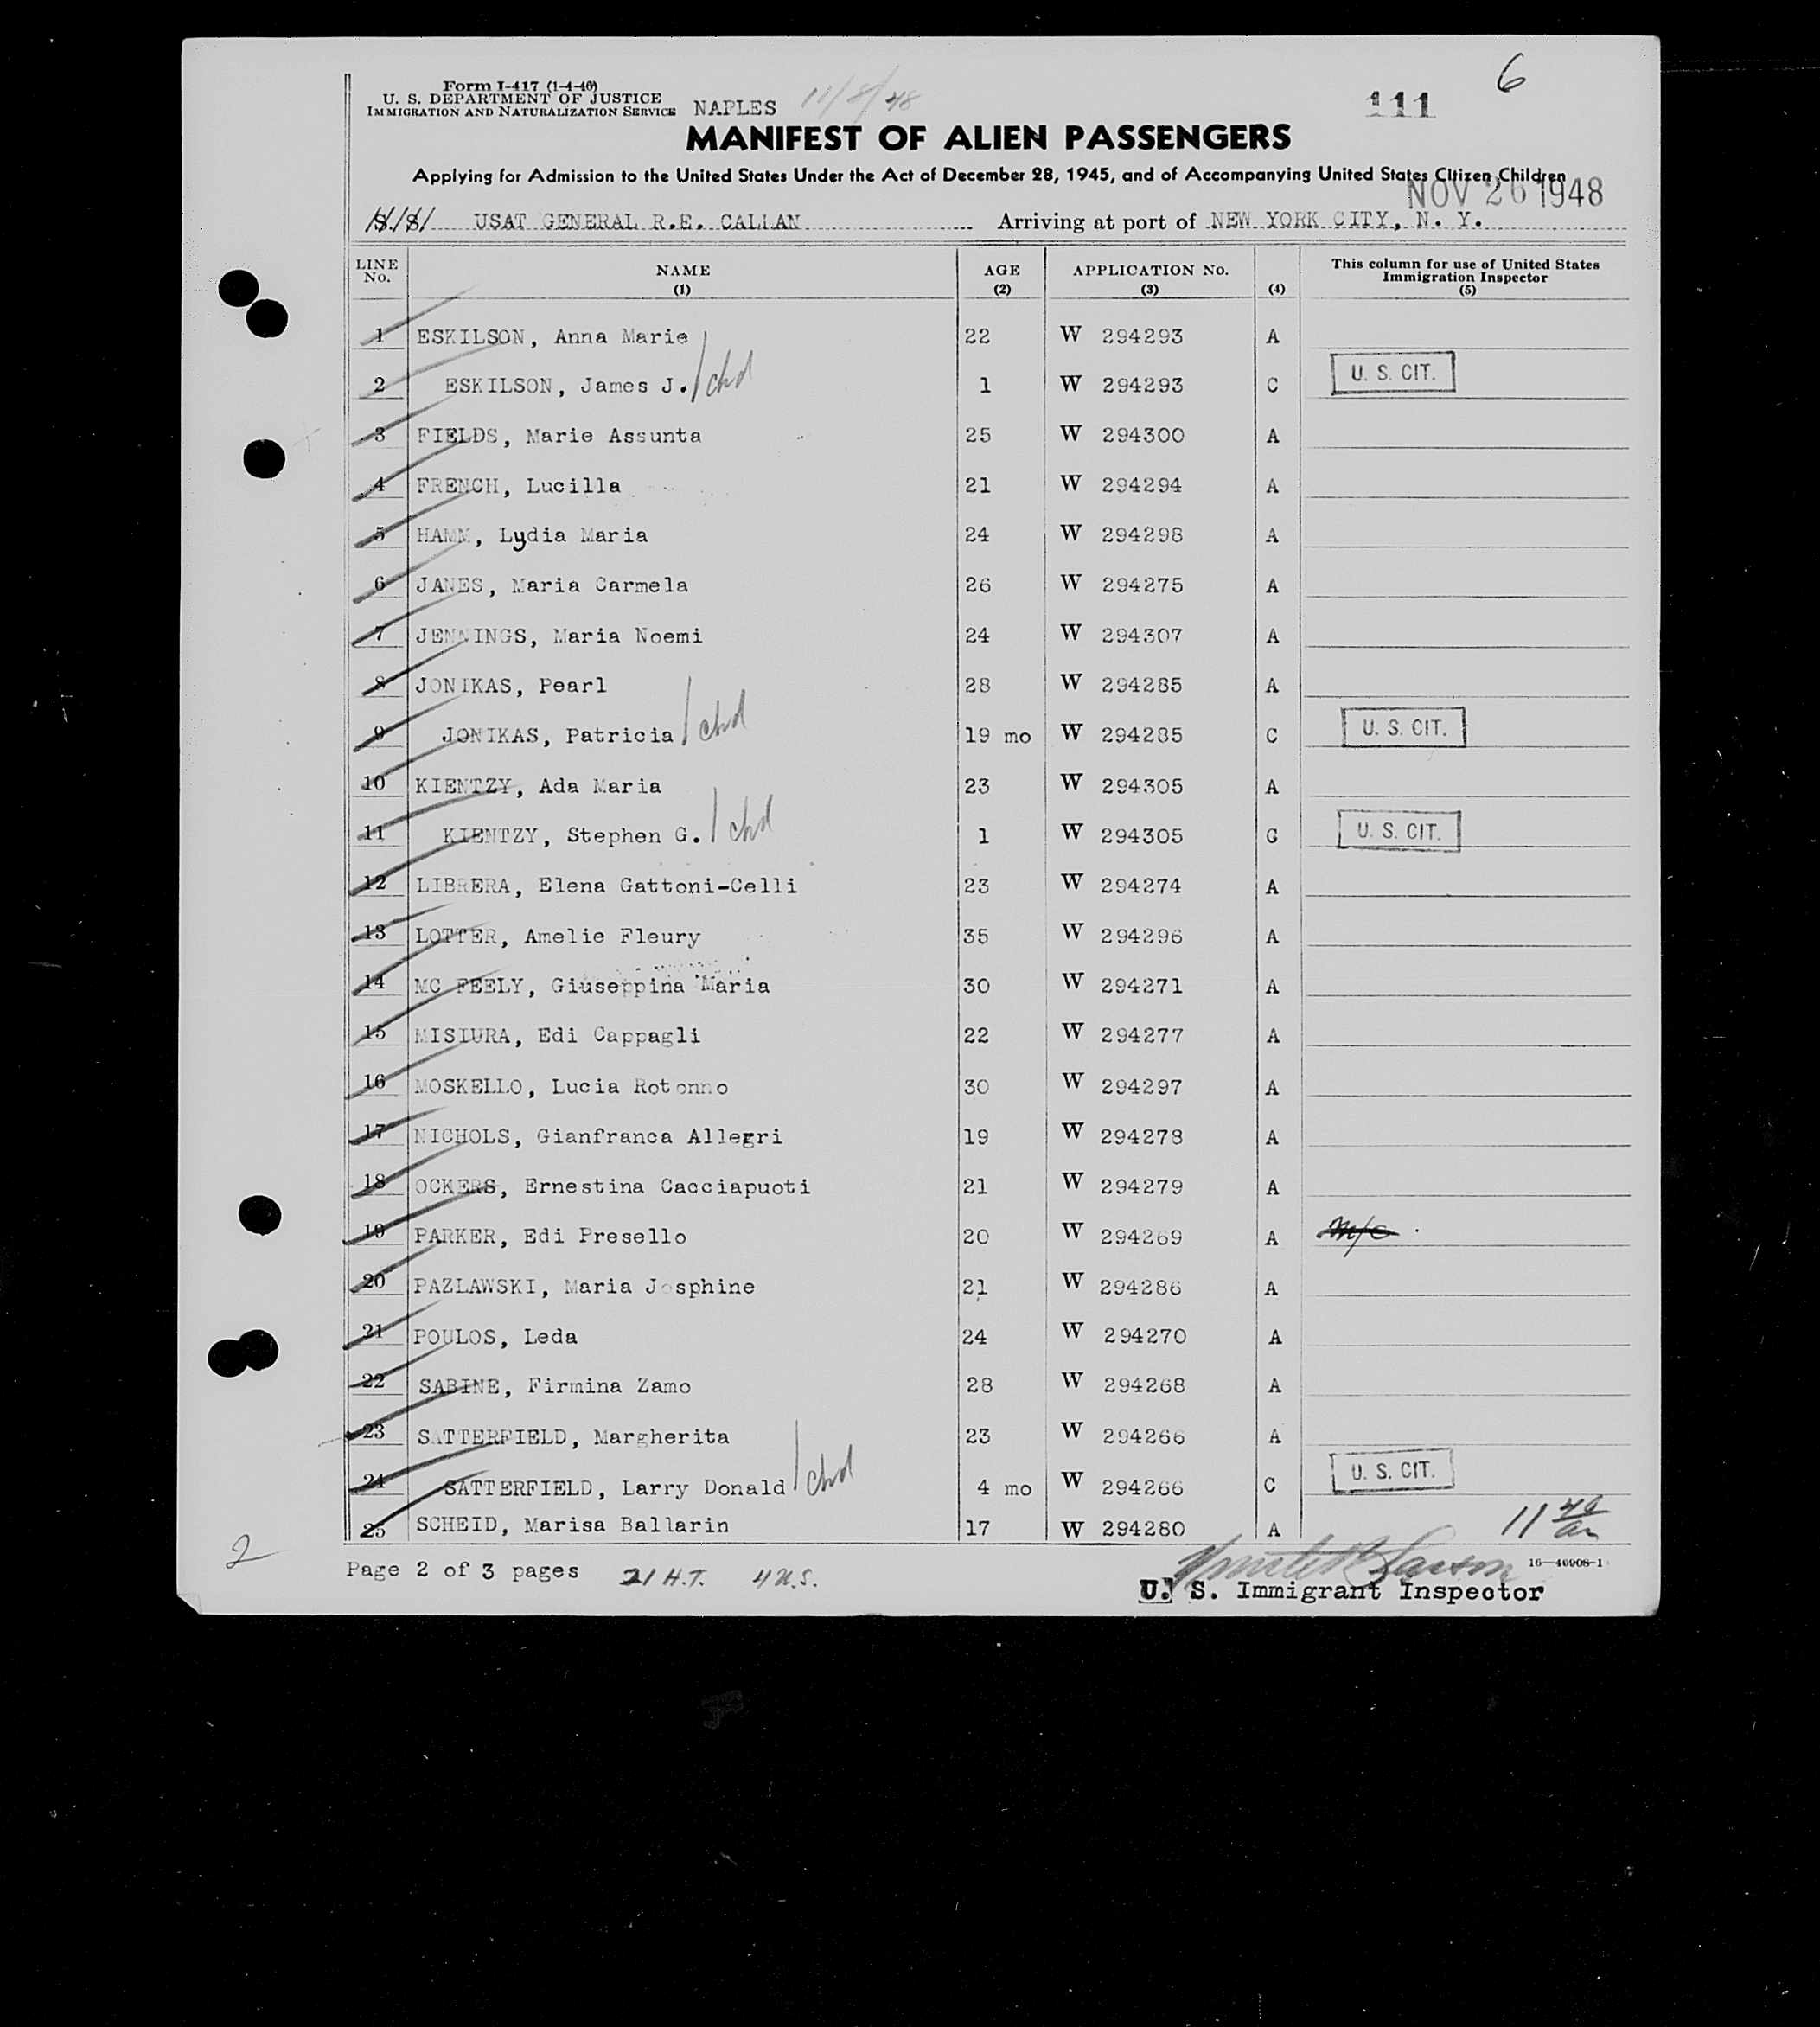 6
Form I-417 (1-4-46)
U. S. DEPARTMENT OF JUSTICE
IMMIGRATION AND NATURALIZATION SERVICE
NAPLES 11/8/48
111
MANIFEST OF ALIEN PASSENGERS
Applying for Admission to the United States Under the Act of December 28, 1945, and of Accompanying United States Citizen Children
NOV 26 1948
S. S. USAT GENERAL R.E. CALLAN Arriving at port of NEW YORK CITY, N. Y.
LINE No. NAME (1) AGE (2) APPLICATION No. (3) (4) This column for use of United States Immigration Inspector (5)
1 ESKILSON, Anna Marie 22 W 294293 A
2 ESKILSON, James J. chd 1 W 294293 C U. S. CIT.
3 FIELDS, Marie Assunta 25 W 294300 A
4 FRENCH, Lucilla 21 W 294294 A
5 HAMM, Lydia Maria 24 W 294298 A
6 JANES, Maria Carmela 26 W 294275 A
7 JENNINGS, Maria Noemi 24 W 294307 A
8 JONIKAS, Pearl 28 W 294285 A
9 JONIKAS, Patricia chd 19 mo W 294285 C U. S. CIT.
10 KIENTZY, Ada Maria 23 W 294305 A
11 KIENTZY, Stephen G. chd 1 W 294305 C U. S. CIT.
12 LIBRERA, Elena Gattoni-Celli 23 W 294274 A
13 LOTTER, Amelie Fleury 35 W 294296 A
14 MC FEELY, Giuseppina Maria 30 W 294271 A
15 MISIURA, Edi Cappagli 22 W 294277 A
16 MOSKELLO, Lucia Rotonno 30 W 294297 A
17 NICHOLS, Gianfranca Allegri 19 W 294278 A
18 OCKERS, Ernestina Cacciapuoti 21 W 294279 A
19 PARKER, Edi Presello 20 W 294269 A m/c
20 PAZLAWSKI, Maria Josphine 21 W 294286 A
21 POULOS, Leda 24 W 294270 A
22 SABINE, Firmina Zamo 28 W 294268 A
23 SATTERFIELD, Margherita 23 W 294266 A
24 SATTERFIELD, Larry Donald chd 4 mo W 294266 C U. S. CIT.
25 SCHEID, Marisa Ballarin 17 W 294280 A
2
Page 2 of 3 pages 21 H.T. 4 U.S.
16—46908-1
U. S. Immigrant Inspector